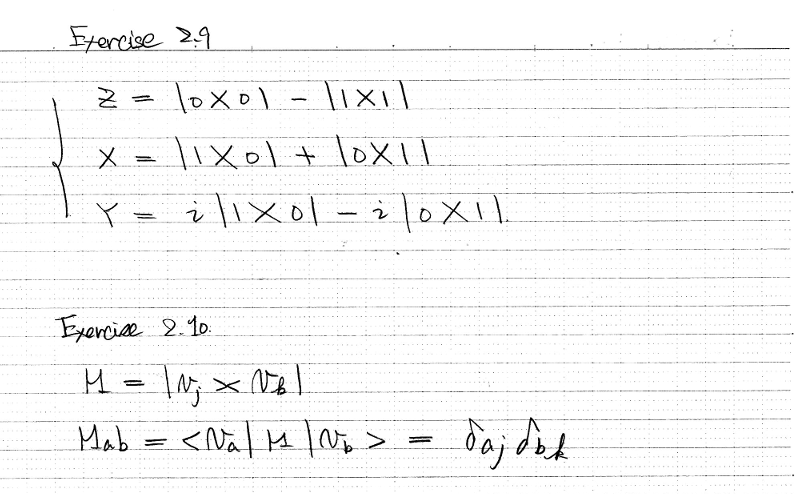 Exercise 2.9
Z = |0X0| - |1X1|
X = |1X0| + |0X1|
Y = i|1X0| - i|0X1|.
Exercise 2.10.
M = |Vj × Vk|
Mab = <Va|M|Vb> = δaj δbk